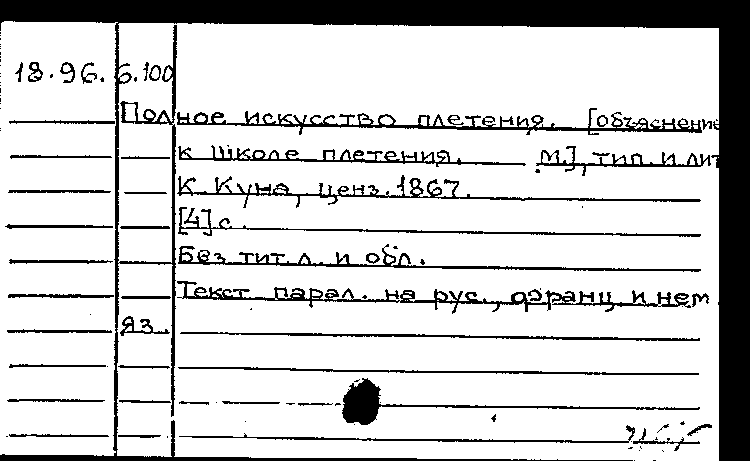 18.96.6.100
Полное искусство плетения. [объяснение
к школе плетения. М.], тип. и лит
К. Куна, ценз. 1867.
[4] с.
Без тит. л. и обл.
Текст парал. на рус., франц. и нем.
яз.